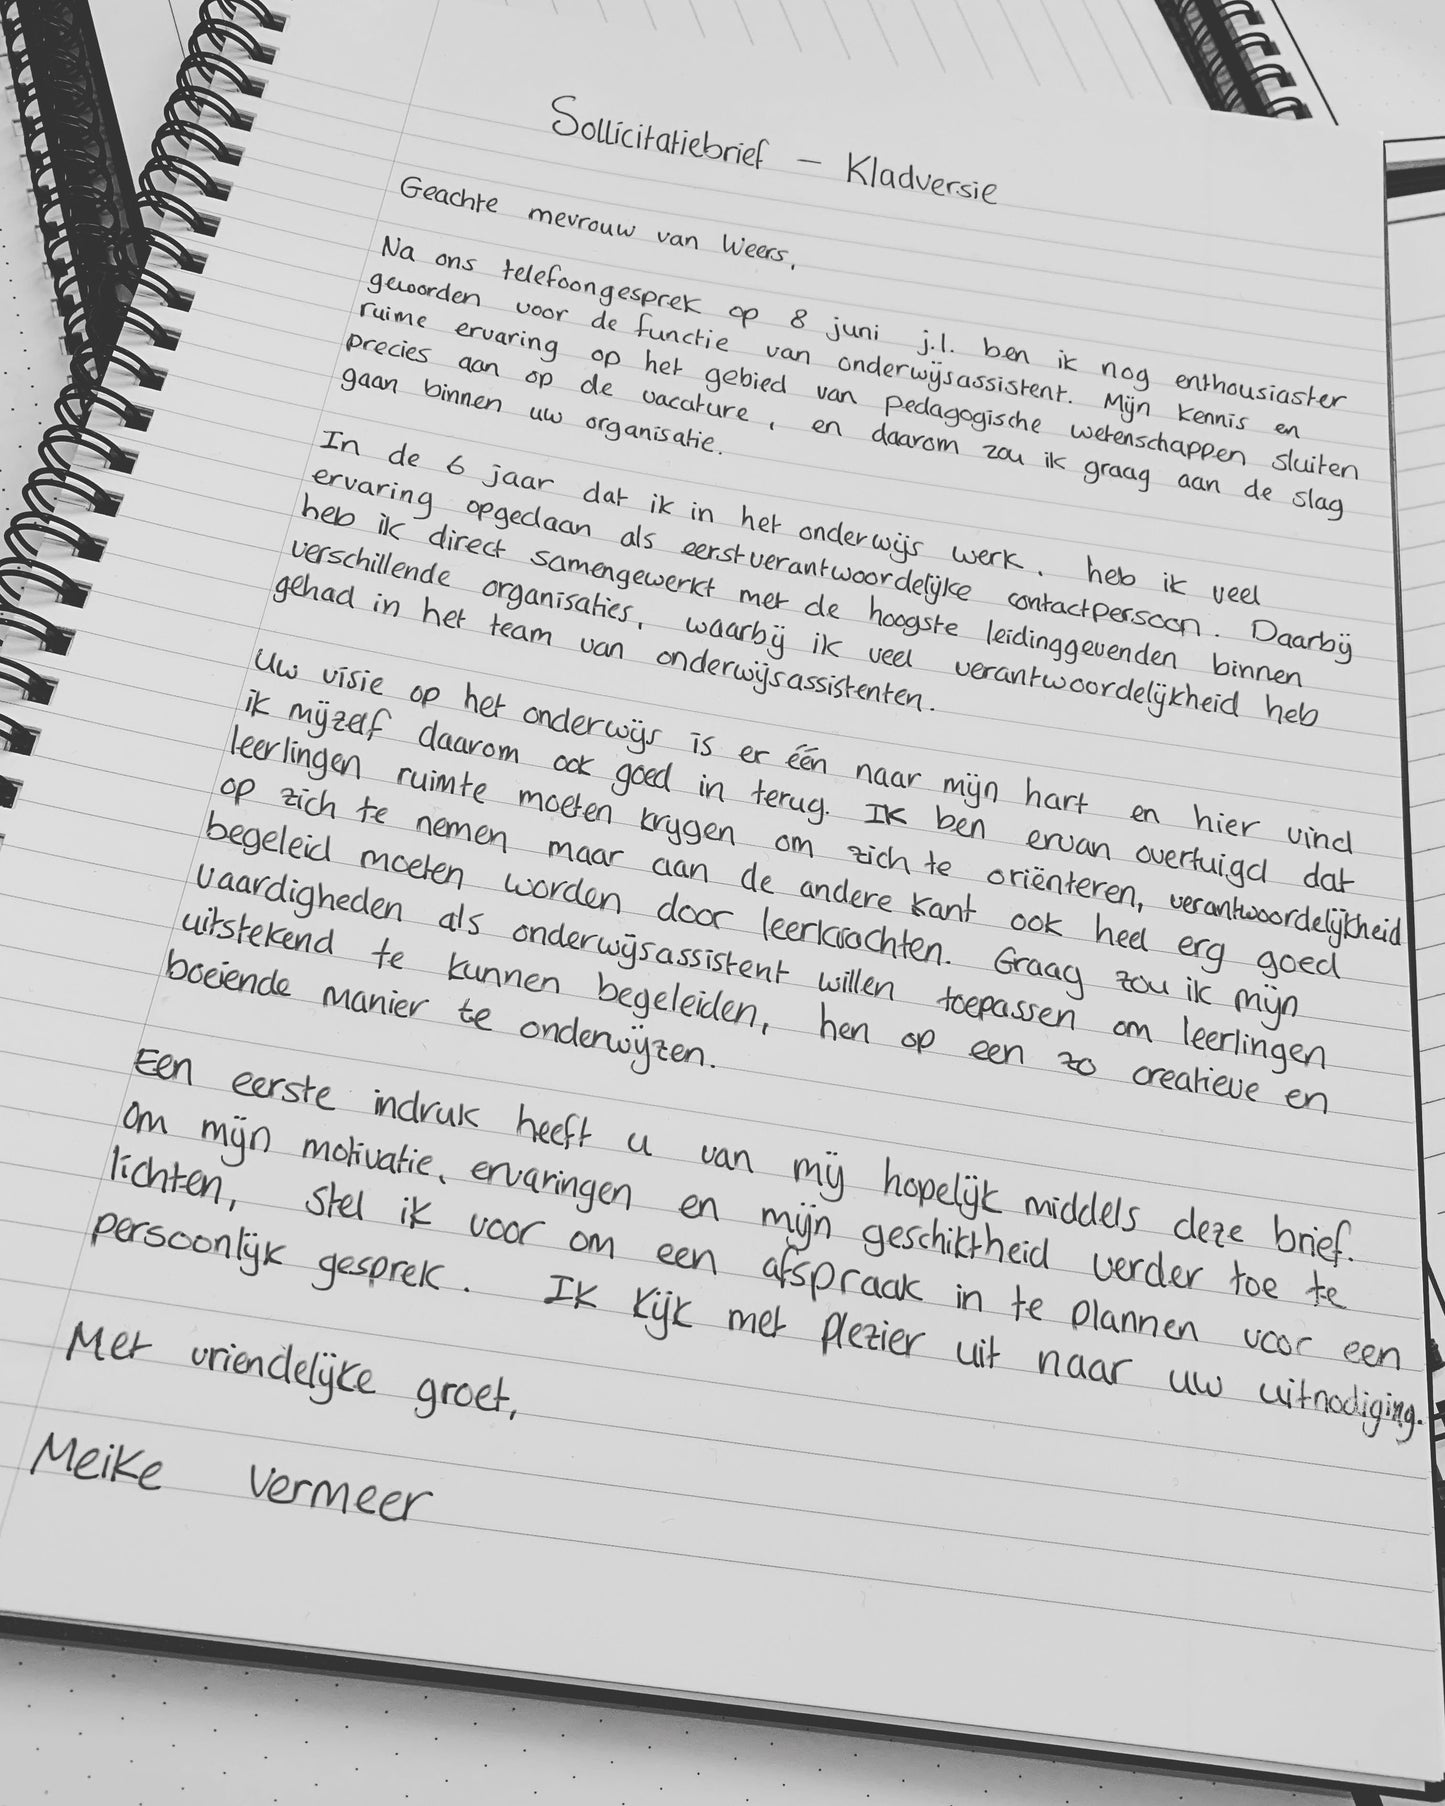 Sollicitatiebrief – Kladversie
Geachte mevrouw van Weers,
Na ons telefoongesprek op 8 juni j.l. ben ik nog enthousiaster
geworden voor de functie van onderwijsassistent. Mijn kennis en
ruime ervaring op het gebied van pedagogische wetenschappen sluiten
precies aan op de vacature, en daarom zou ik graag aan de slag
gaan binnen uw organisatie.
In de 6 jaar dat ik in het onderwijs werk, heb ik veel
ervaring opgedaan als eerstverantwoordelijke contactpersoon. Daarbij
heb ik direct samengewerkt met de hoogste leidinggevenden binnen
verschillende organisaties, waarbij ik veel verantwoordelijkheid heb
gehad in het team van onderwijsassistenten.
Uw visie op het onderwijs is er één naar mijn hart en hier vind
ik mijzelf daarom ook goed in terug. Ik ben ervan overtuigd dat
leerlingen ruimte moeten krijgen om zich te oriënteren, verantwoordelijkheid
op zich te nemen maar aan de andere kant ook heel erg goed
begeleid moeten worden door leerkrachten. Graag zou ik mijn
vaardigheden als onderwijsassistent willen toepassen om leerlingen
uitstekend te kunnen begeleiden, hen op een zo creatieve en
boeiende manier te onderwijzen.
Een eerste indruk heeft u van mij hopelijk middels deze brief.
Om mijn motivatie, ervaringen en mijn geschiktheid verder toe te
lichten, stel ik voor om een afspraak in te plannen voor een
persoonlijk gesprek. Ik kijk met plezier uit naar uw uitnodiging.
Met vriendelijke groet,
Meike Vermeer